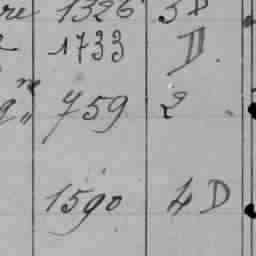 re 1326 5D
1733 D.
q„ re 759 2
1590 4D